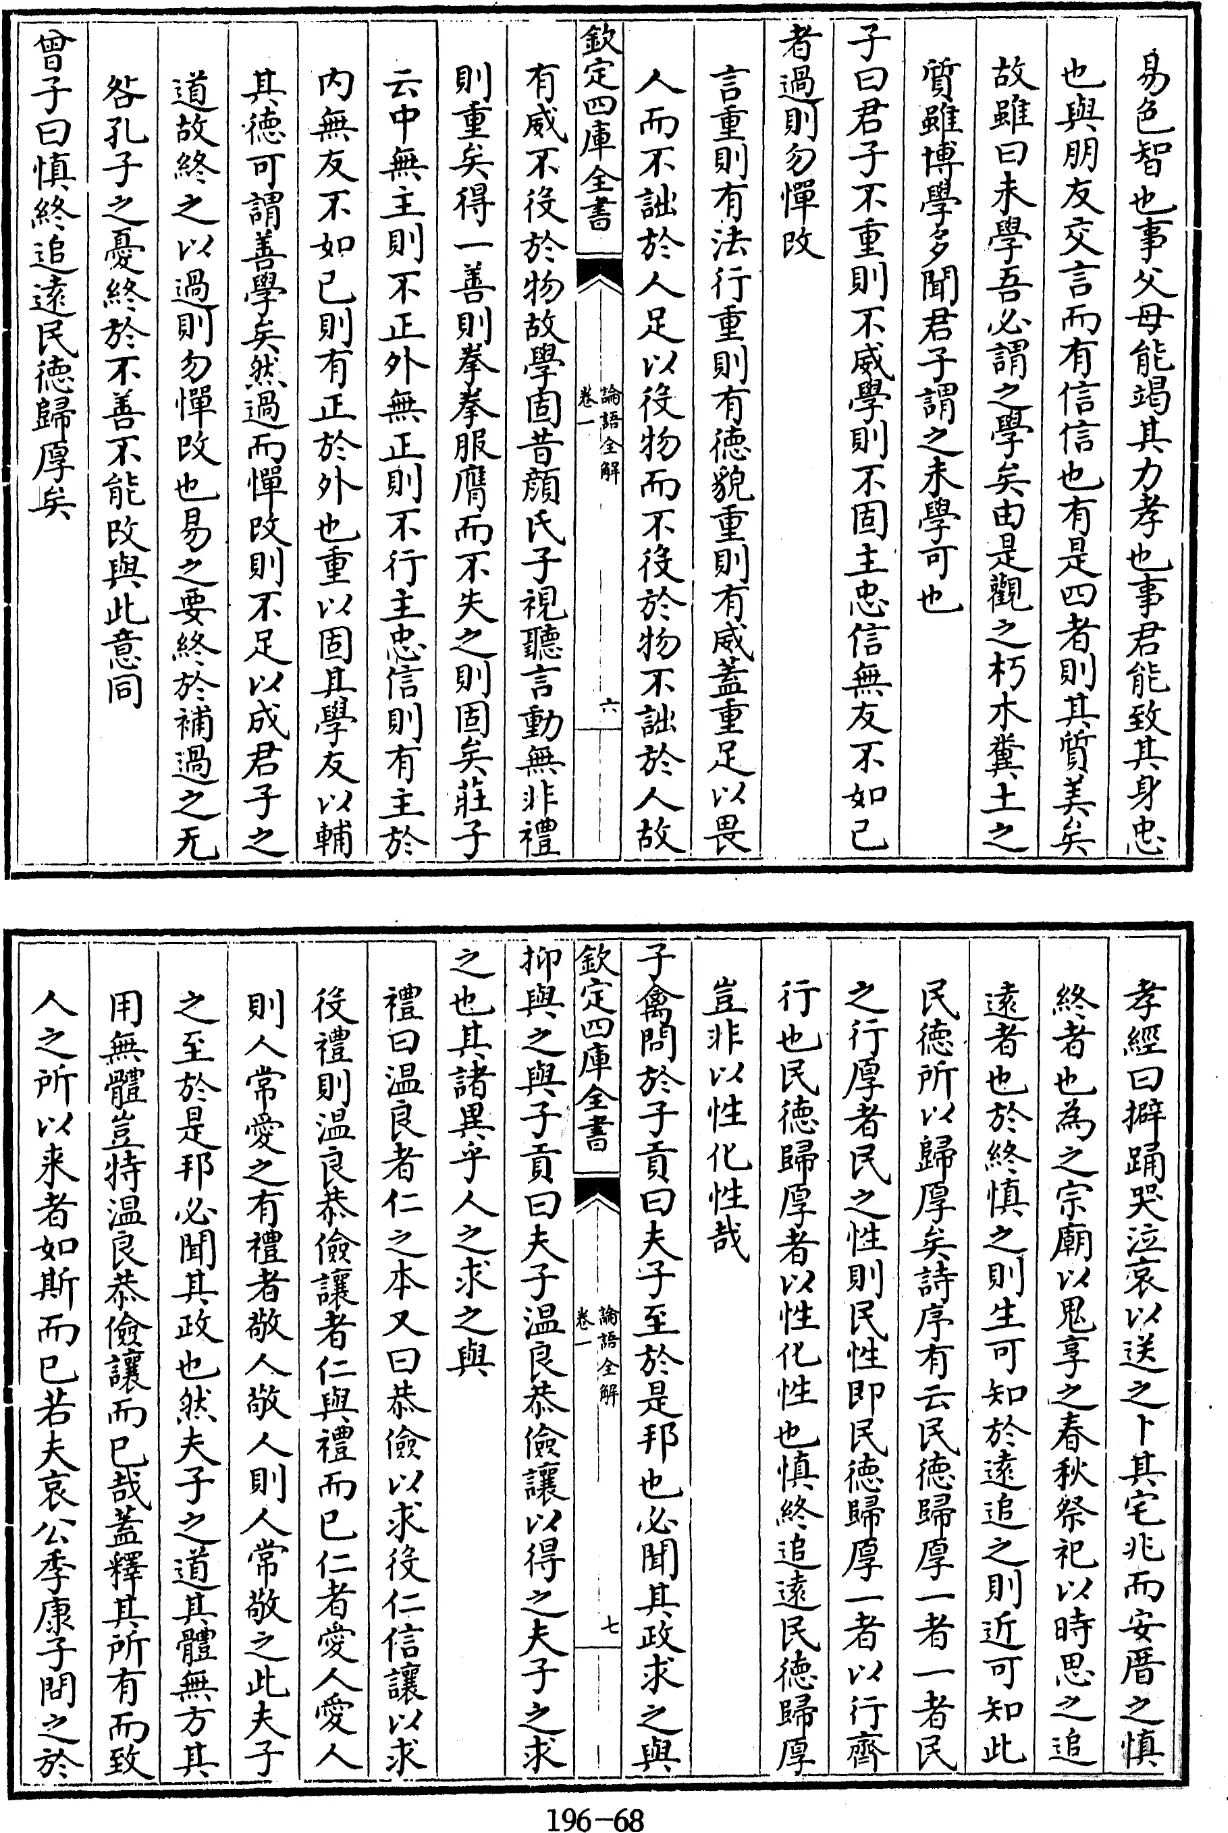 易色智也事父母能竭其力孝也事君能致其身忠
也與朋友交言而有信信也有是四者則其質美矣
故雖曰未學吾必謂之學矣由是觀之朽木糞土之
質雖博學多聞君子謂之未學可也
子曰君子不重則不威學則不固主忠信無友不如己
者過則勿憚改
言重則有法行重則有德貌重則有威蓋重足以畏
人而不詘於人足以役物而不役於物不詘於人故
欽定四庫全書
論語全解
卷一
六
有威不役於物故學固昔顔氏子視聽言動無非禮
則重矣得一善則拳拳服膺而不失之則固矣莊子
云中無主則不正外無正則不行主忠信則有主於
内無友不如己則有正於外也重以固其學友以輔
其德可謂善學矣然過而憚改則不足以成君子之
道故終之以過則勿憚改也易之要終於補過之无
咎孔子之憂終於不善不能改與此意同
曾子曰慎終追遠民德歸厚矣
孝經曰擗踊哭泣哀以送之卜其宅兆而安厝之慎
終者也為之宗廟以鬼享之春秋祭祀以時思之追
遠者也於終慎之則生可知於遠追之則近可知此
民德所以歸厚矣詩序有云民德歸厚一者一者民
之行厚者民之性則民性即民德歸厚一者以行齊
行也民德歸厚者以性化性也慎終追遠民德歸厚
豈非以性化性哉
子禽問於子貢曰夫子至於是邦也必聞其政求之與
欽定四庫全書
論語全解
卷一
七
抑與之與子貢曰夫子温良恭儉讓以得之夫子之求
之也其諸異乎人之求之與
禮曰温良者仁之本又曰恭儉以求役仁信讓以求
役禮則温良恭儉讓者仁與禮而已仁者愛人愛人
則人常愛之有禮者敬人敬人則人常敬之此夫子
之至於是邦必聞其政也然夫子之道其體無方其
用無體豈特温良恭儉讓而已哉蓋釋其所有而致
人之所以来者如斯而已若夫哀公季康子問之於
196-68